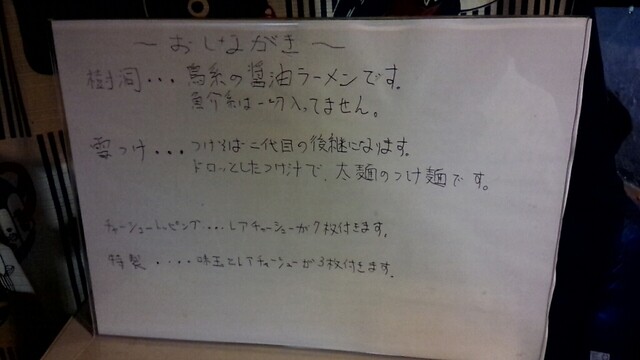 〜おしながき〜
樹洞・・・鳥系の醤油ラーメンです。
魚介系は一切入ってません。
雲つけ・・・つけそば二代目の後継になります。
ドロッとしたつけ汁で、太麺のつけ麺です。
チャーシュートッピング・・・レアチャーシューが7枚付きます。
特製・・・・味玉とレアチャーシューが3枚付きます。